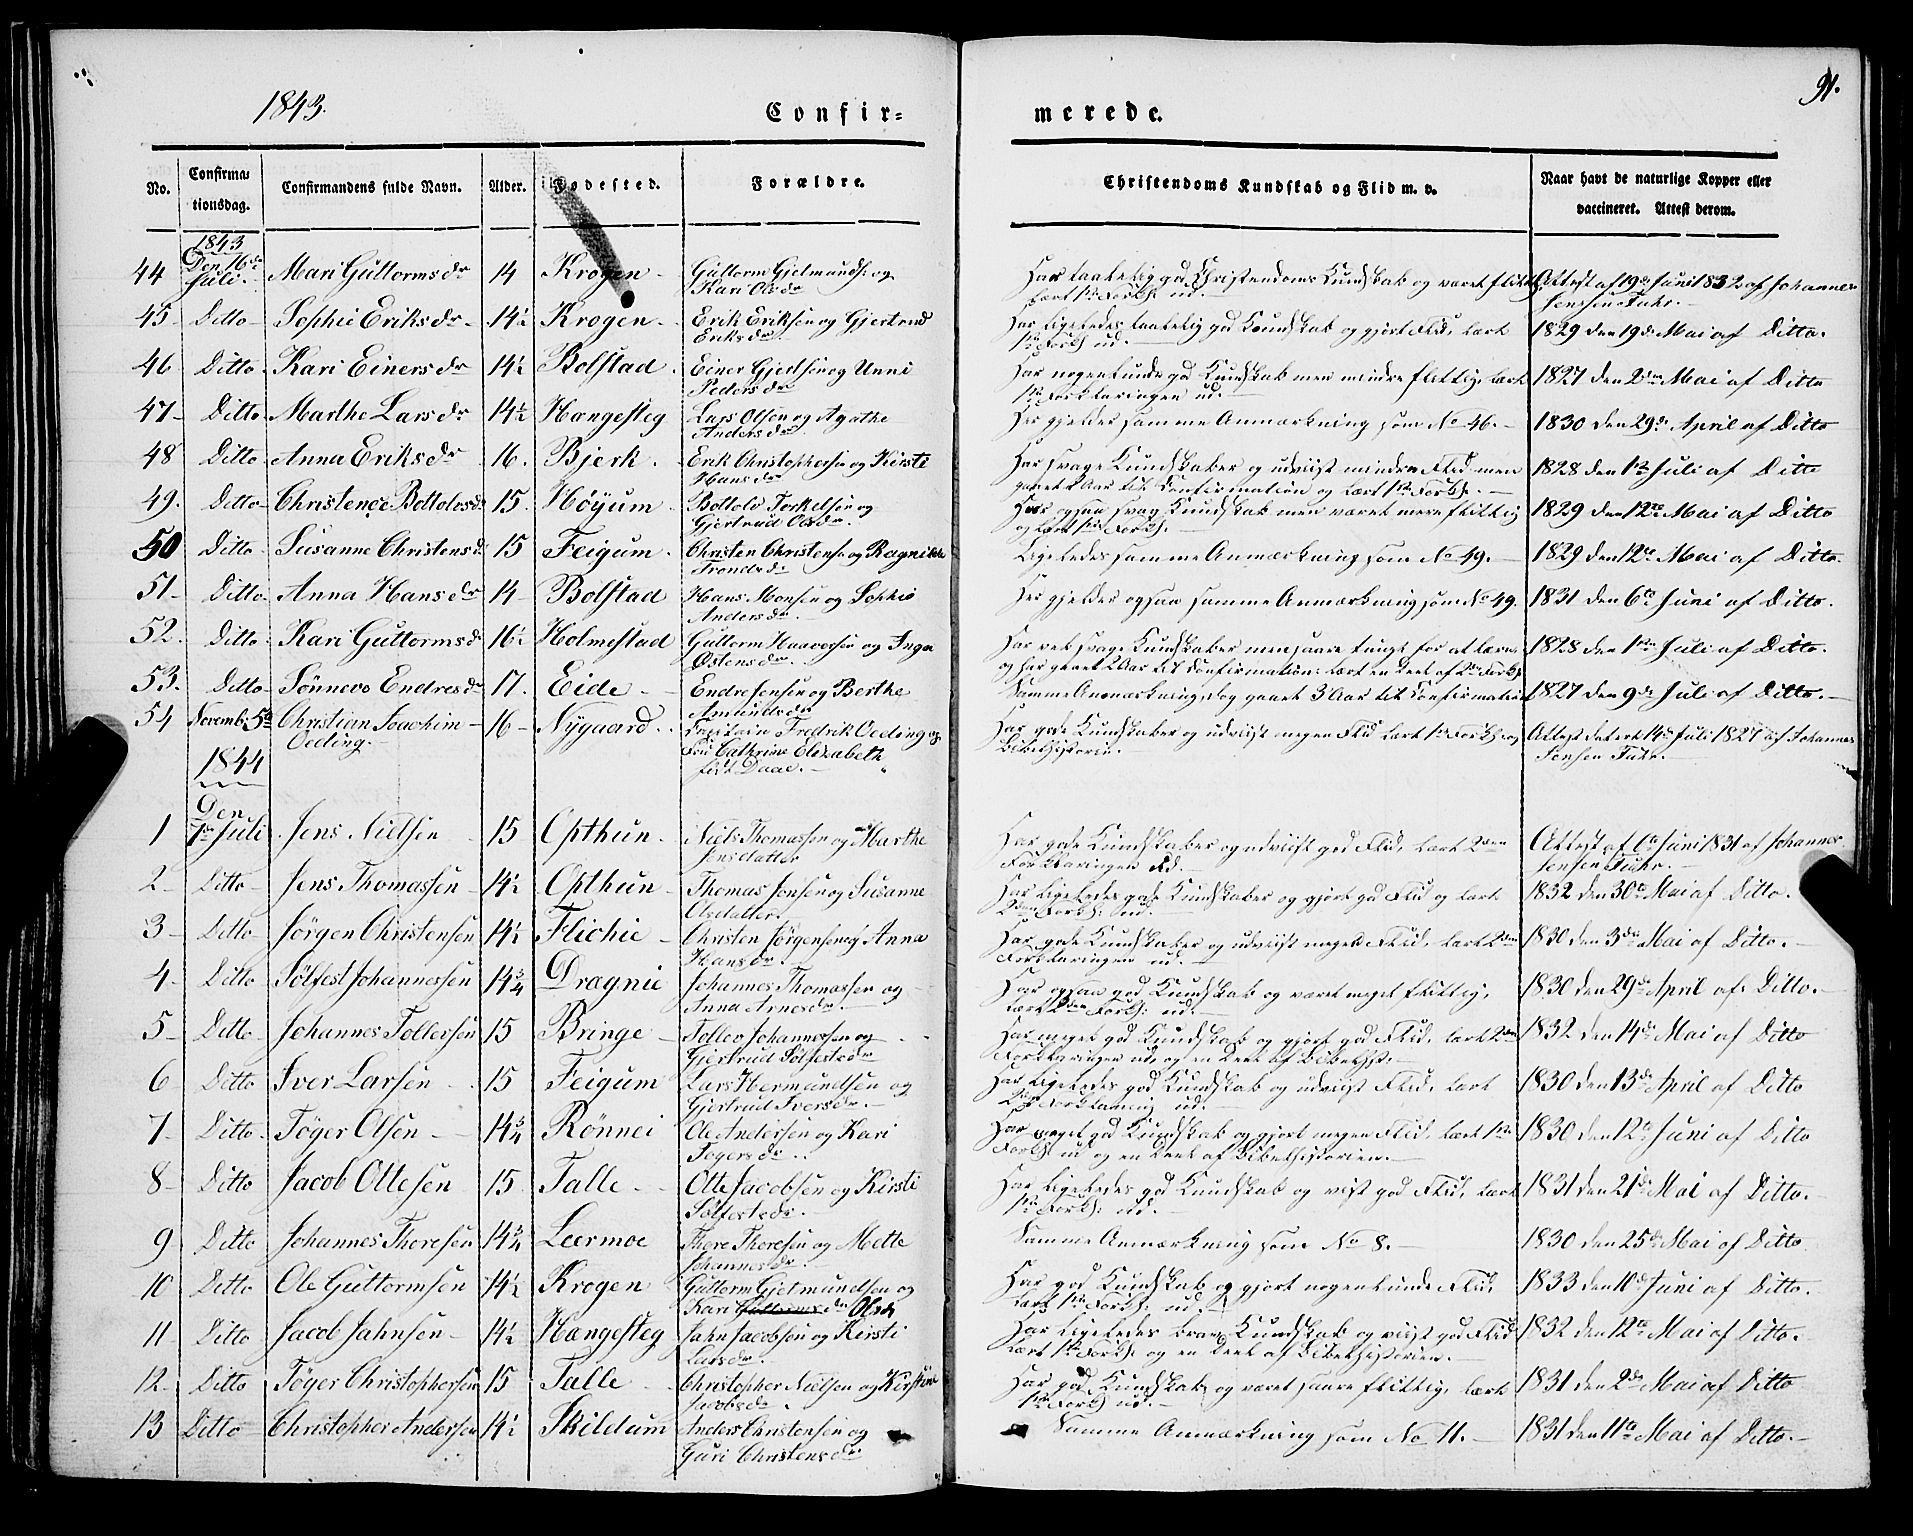 1843.
Confir-
merede.
91.
No.
Confirma-
tionsdag.
Confirmandens fulde Navn.
Alder.
Fødested.
Forældre.
Christendoms Kundskab og Flid m. v.
Naar havt de naturlige Kopper eller
vaccineret. Attest derom.
1843
Den 16de
44 Juli. Mari Guttormsdr 14 Krogen Guttorm Gjelmundse og
Kari Olsdr
Har taalelig god Christendoms Kundskab og været flittig Attest af 19de Juni 1832 af Johannes
lært 1ste Forkl. ud. Jensen Fuhr.
45 Ditto Sophie Eriksdr 14½ Krogen Erik Eriksen og Gjertrud
Eriksdr
Har ligeledes taalelig god Kundskab og gjort Flid, lært 1829 den 19de Mai af Ditto.
1ste Forkl. ud.
46 Ditto Kari Einersdr 14½ Bolstad Einer Gjertsen og Unni
Pedersdr
Har nogenlunde god Kundskab men mindre flittig, lært 1827 den 2den Mai af Ditto
1ste Forklaringen ud.
47 Ditto Marthe Larsdr 14½ Hængesteg Lars Olsen og Agathe
Andersdr
Her gjeldes samme Anmærkning som No 46. 1830 den 29de April af Ditto
48 Ditto Anna Eriksdr 16. Bjerk. Erik Christophersen og Kirsti
Hansdr
Har svage Kundskaber og udviist mindre Flid men 1828 den 1ste Juli af Ditto
gaaet 2 Aar til Confirmation og lært 1ste Forkl.
49. Ditto Christence Bottolvsdr 15. Høyum Bottolv Torkelsen og
Gjertrud Olsdr.
Har ogsaa svag Kundskab men været mere flittig 1829 den 12te Mai af Ditto
og lært 1ste Forkl.
50 Ditto Susanne Christensdr 15 Feigum Christen Christense og Ragnilde
Trondsdr
Ligeledes samme Anmærkning som No 49. 1829 den 12te Mai af Ditto.
51 Ditto Anna Hansdr 14 Bolstad Hans Monsen og Sophie
Andersdr.
Her gjeldes ogsaa samme Anmærkning som No 49. 1831 den 6te Juni af Ditto.
52. Ditto Kari Guttormsdr 16½ Holmestad Guttorm Haavorsen og Inga
Østensdr.
Har ret svage Kundskaber men saare tungt for at lære 1828 den 1ste Juli af Ditto.
og har gaaet 2 Aar til Confirmation: lært en Deel af 1ste Forkl.
53. Ditto Sønneva Endresdr 17. Eide Endre Jensen og Berthe
Amundsdr
Samme Anmærkning, dog gaaet 3 Aar til Confirmation 1827 den 9de Juli af Ditto.
54 Novemb: 5te Christian Joachim 16 Nygaard Fredrik Oeding og
Oeding. Cathrine Elizabeth
født Daae.
Har gode Kundskaber og udviist megen Flid lært 1ste Forkl. og Attest dateret 14de Juli 1827 af Johannes
Bibelhistorie. Jensen Fuhr.
1844
Den
1 1ste Juli Jens Nielsen 15 Opthun. Niels Thomassen og Marthe
Jensdatter
Har gode Kundskaber og udviist god Flid, lært 2den Attest af 6te Juni 1831 af Johannes
Forklaringen ud. Jensen Fuhr.
2 Ditto Jens Thomassen 14½ Opthun Thomas Jensen og Susanne
Olsdatter
Har ligeledes gode Kundskaber og gjort god Flid og lært 1832 den 30te Mai af Ditto.
2den Forkl. ud.
3 Ditto Jørgen Christensen 14½ Flichie Christen Jørgensen og Anna
Hansdr.
Har gode Kundskaber og udviist megen Flid, lært 2den 1830 den 3die Mai af Ditto.
Forklaringen ud.
4 Ditto Sølfest Johannessen 14¾ Dragnie Johannes Thomassen og
Anna Arnesdr
Har ogsaa god Kundskab og været meget flittig, 1830 den 29de April af Ditto.
lært 2den Forkl. ud.
5 Ditto Johannes Tollevsen 15 Bringe Tollev Johannessen og
Gjertrud Sølfestsdr
Har meget god Kundskab og gjort god Flid, lært 2den 1832 den 14de Mai af Ditto
Forklaringen ud, og en Deel af Bibelhist.
6 Ditto Iver Larsen 15 Feigum Lars Hermundsen og
Gjertrud Iversdr.
Har ligeledes god Kundskab og udviist Flid, lært 1830 den 13de April af Ditto
Forklaring ud.
7 Ditto Tøger Olsen 14¾ Rønnei Ole Andersen og Kari
Tøgersdr.
Har meget god Kundskab og gjort megen Flid, lært 1ste 1830 den 12te Juni af Ditto
Forkl. ud og en Deel af Bibelhistorien.
8 Ditto Jacob Ottesen 15 Talle Otte Jacobsen og Kirsti
Sølfestsdr.
Har ligeledes god Kundskab og viist god Flid, lært 1831 den 21de Mai af Ditto.
1ste Forkl. ud.
9 Ditto Johannes Thoresen 14¾ Leermoe Thore Thoresen og Mette
Johannesdr.
Samme Anmærkning som No 8. 1830 den 25de Mai af Ditto
10 Ditto Ole Guttormsen 14½ Krogen Guttorm Gjelmundsen og
Kari Guttormsdr Olsdr
Har god Kundskab og gjort nogenlunde Flid, 1833 den 10de Juni af Ditto.
lært 1ste Forkl. ud.
11 Ditto Jacob Jahnsen 14½ Hængesteg Jahn Jacobsen og Kirsti
Larsdr.
Har ligeledes brav Kundskab og viist god Flid 1832 den 12te Mai af Ditto.
lært 1ste Forkl. og en Deel af Bibelhistorien.
12. Ditto Tøger Christophersen 15 Talle Christopher Nielsen og Kirstine
Jacobsdr.
Har god Kundskab og været saare flittig, lært 1831 den 2den Mai af Ditto
1ste Forkl. ud.
13 Ditto Christopher Andersen 14½ Skildum Anders Christensen og
Guri Christensdr
Samme Anmærkning som No 11. 1831 den 11te Mai af Ditto.